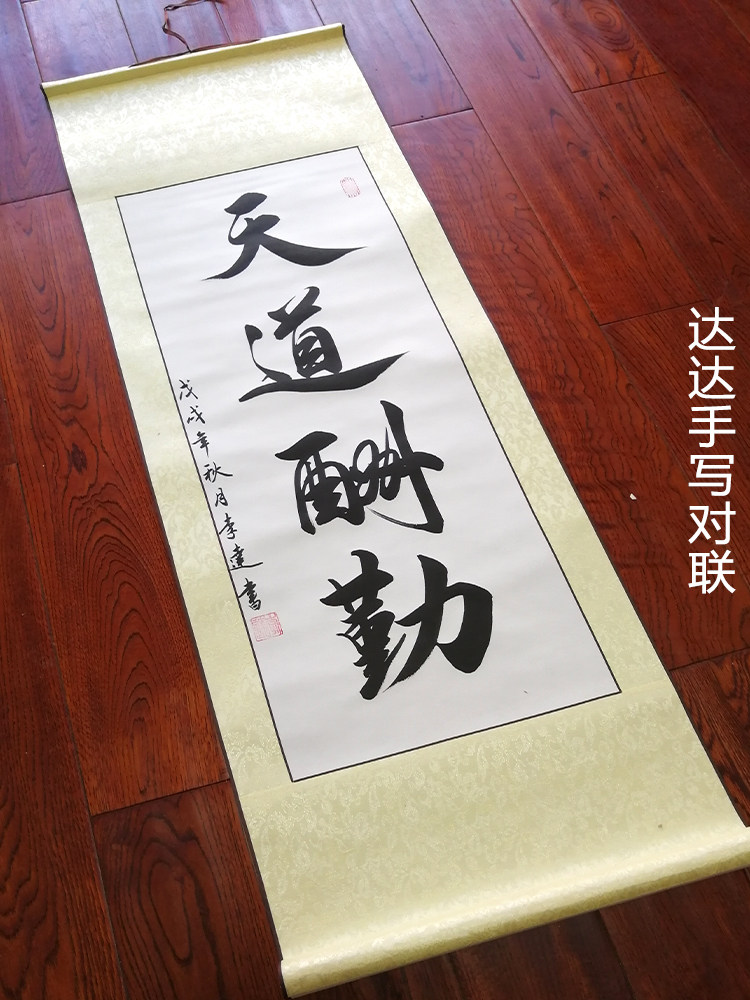 天道酬勤
戊戌年秋月李達書
达达手写对联